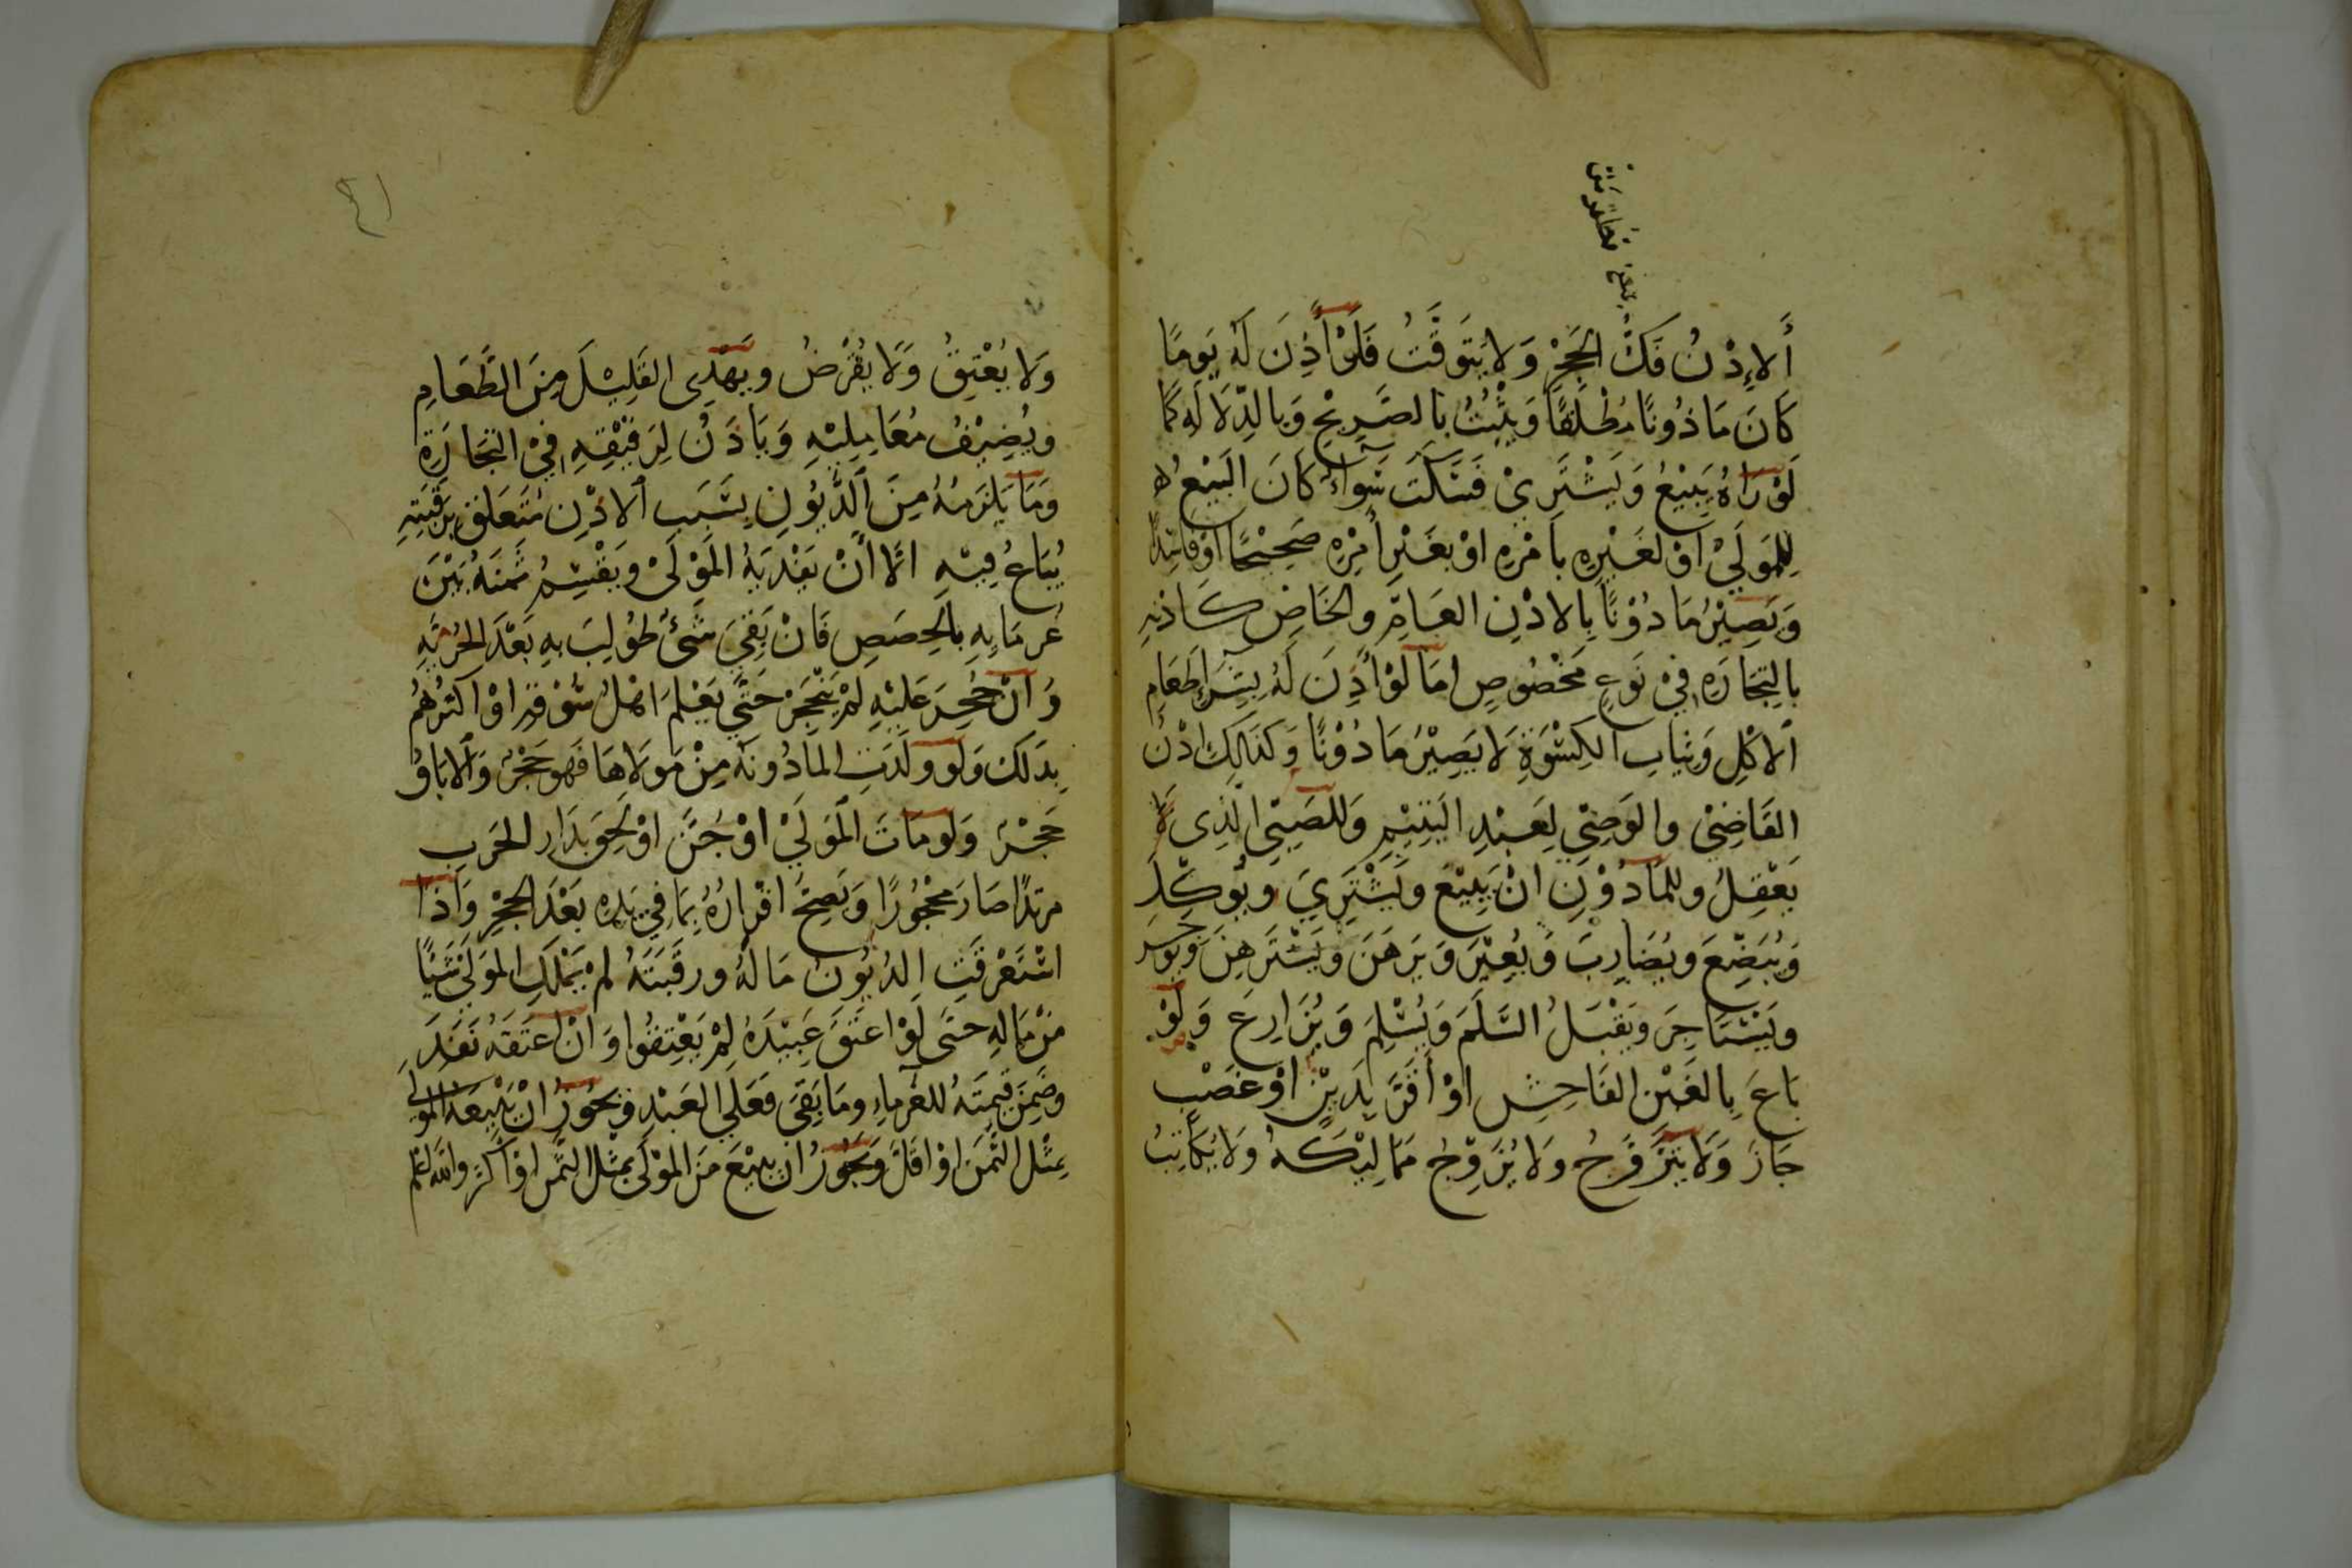 أَلإِذْنُ فَكُّ الحَجْرِ وَلا يَتَوَقَّتُ فَلَوْ أَذِنَ لَهُ يَومًا
كَانَ مَاذُونًا مُطْلَقًا وَيَثْبُتُ بالصَّرِيْحِ وَبالدِّلَالَهِ كَمَا
لَوْ رَاهُ يَبِيْعُ وَيَشْتَرِيْ فَسَكَتَ سَوَآءٌ كَانَ البَيْعُ
لِلمَولَيْ اوْ لغَيْرِهِ بأَمْرِهِ اوْ بغَيْرِ أَمْرِهِ صَحِيْحًا اوْ فَاسِدًا
وَيَصِيْرُ مَادُوْنًا بِالادْنِ العَامِّ والخَاصِّ كَاذنِهِ
بالتِجَارَهِ فيْ نَوعٍ مَخْصُوصٍ امَا لَوْ أَذِنَ لَهُ بِشِرَآءِ طَعَامِ
ألاكْلِ وَثيَابِ الكِسْوَةِ لَا يَصِيْرُ مَادُوْنًا وَكَذَالِكَ اذْنُ
القَاضِيْ والوَصِيِّ لِعَبْدِ اليَتِيْمِ وَللصَبِيّ الَّذِي
يَعْقِلُ وللمَادُوْنِ انْ يَبِيْعَ ويَشْتَرِيَ ويُوَكِّلَ
وَيُبَضِّعَ ويُضَارِبَ وَيُعِيْرَ وَيَرهَنَ وَيَسْتَرهِنَ وَيُوجِرَ
ويَسْتَاجِرَ ويَقْبَلُ السَّلَمَ وَيُسْلِمَ وَيُزَارِعَ وَلَوْ
بَاعَ بالغَبْنِ الفَاحِشِ اوْ أَقَرَّ بِدَيْنٍ اوْ غَصْبٍ
جَازَ وَلَا يَتَزَوَّجُ وَلا يُزَوِّجُ مَمَالِيْكَهُ وَلا يُكَاتِبُ
وَلا يُعْتِقُ وَلَا يُقْرِضُ ويَهْدِى القَلِيْلَ مِنَ الطَّعَامِ
ويُضِيْفُ مُعَامِلِيْهِ وَيَادَنُ لِرَقِيْقِهِ فيْ التِجَارَةِ
وَمَا يَلزَمُهُ مِنَ ألدُّيُونِ بسَبَبِ ألادْنِ مُتَعَلِقٌ برَقَبَتِهِ
يُبَاعُ فِيْهِ الَّا أَنْ يَفْدِيَهُ المَوْلَىْ ويَقْسِمُ ثَمَنَهُ بَيْنَ
غُرمَايِهِ بالحِصَصِ فَانْ بَقِيَ شَىْءٌ طُولِبَ بهِ بَعْدَ الحُرِّيَّهِ
وَانْ حُجِرَ عَلَيْهِ لَمْ يَنْحَجِرْ حَتَّي يَعْلَمَ اهْلُ سُوْقِهِ اوْ اكثَرُهُمْ
بِدَلكَ وَلَو ولَدَتِ المادُونَهُ مِنْ مَولَاهَا فَهو حَجْرٌ وَالابَاقُ
حَجْرٌ وَلَو مَاتَ المَولَيْ اوْ جُنَّ اوْ لَحِقَ بدَارِ الحَربِ
مرتدًا صَارَ مَحْجُورًا وَيَصِحُّ اقْرَارُهُ بِمَا فِي يَدِهِ بَعْدَ الحَجْرِ وَاذَا
اسْتَغْرَقَتِ الدُيُونُ مَالَهُ ورقَبَتَهُ لَمْ يَمْلِكِ المَولَىْ شَيْأً
مِنْ مَالِهِ حتَى لَوْ اعتَقَ عَبِيْدَهُ لَمْ يَعْتِقُوا وَانْ اعتَقَهُ نَفَذَ
وضَمِنَ قِيمَتَهُ للغُرمَاءِ ومَا بَقِيَ فَعَلَي العَبْدِ وَيَجُوزُ انْ يَبِيعَهُ المَولَى
بمِثْلِ الثَّمَنِ اوْ اقَلَّ وَيَجُوزُ انْ يَبِيْعَ مِنَ المَوْلَى بمِثْلِ الثَّمَنِ اوْ اكثَرَ واللهُ اعْلَم